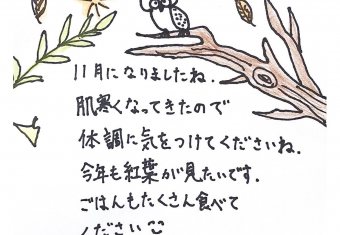 11月になりましたね.
肌寒くなってきたので
体調に気をつけてくださいね.
今年も紅葉が見たいです.
ごはんもたくさん食べて
ください